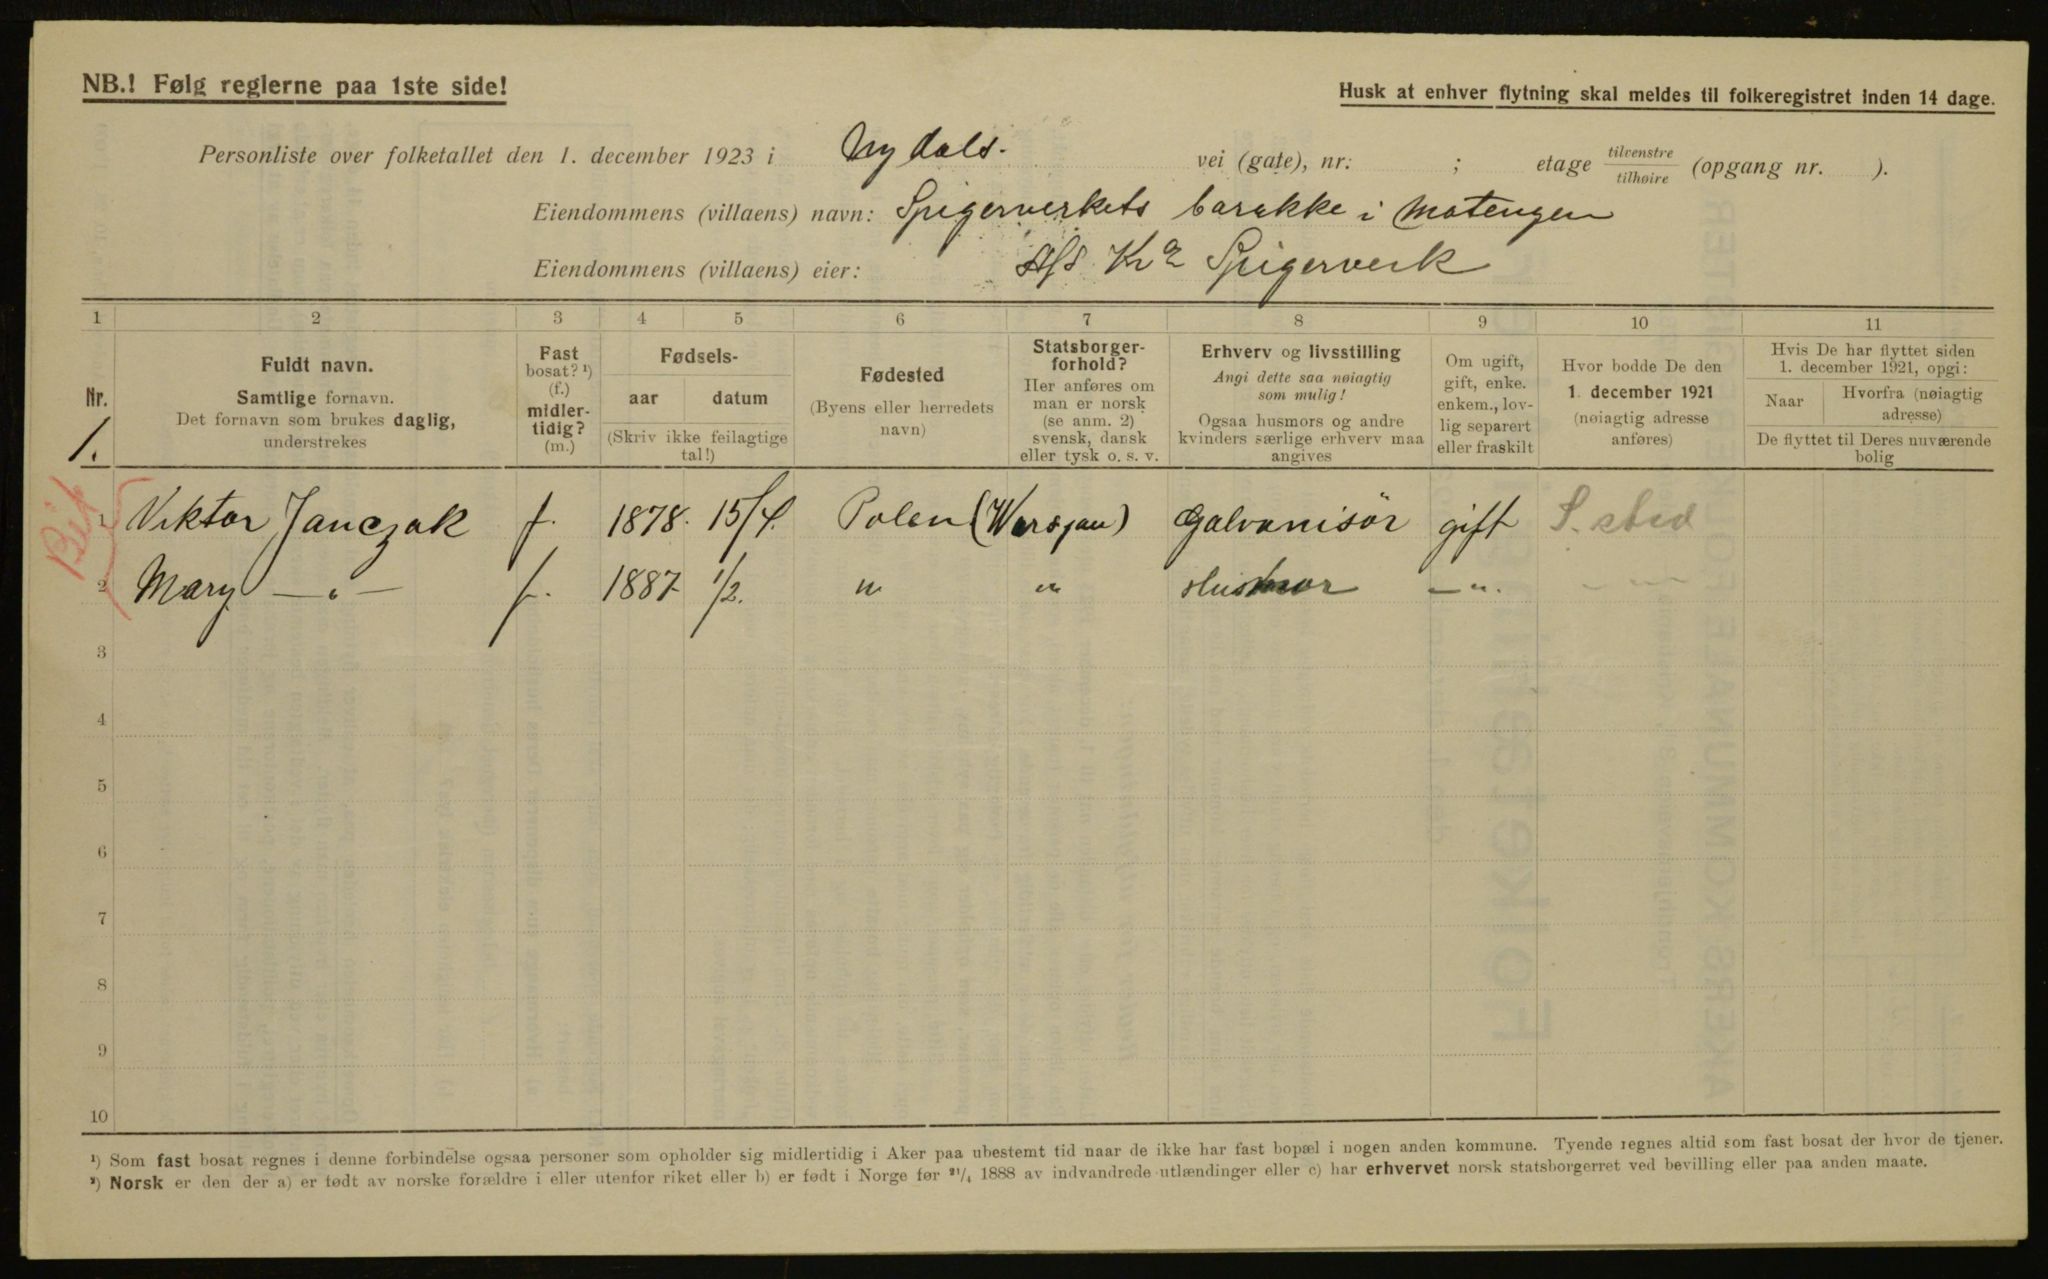 NB.! Følg reglerne paa 1ste side!
Husk at enhver flytning skal meldes til folkeregistret inden 14 dage.
Personliste over folketallet den 1. december 1923 i Nydals. vei (gate), nr: ; etage tilvenstre tilhøire (opgang nr. ).
Eiendommens (villaens) navn: Spigerverkets barakke i Motengen
Eiendommens (villaens) eier: A/S Kra Spigerverk
1 2 3 4 5 6 7 8 9 10 11
Nr. 1.
Fuldt navn.
Samtlige fornavn.
Det fornavn som brukes daglig,
understrekes
Fast
bosat? ¹)
(f.)
midler-
tidig?
(m.)
Fødsels-
aar datum
(Skriv ikke feilagtige
tal!)
Fødested
(Byens eller herredets
navn)
Statsborger-
forhold?
Her anføres om
man er norsk
(se anm. 2)
svensk, dansk
eller tysk o. s. v.
Erhverv og livsstilling
Angi dette saa nøiagtig
som mulig!
Ogsaa husmors og andre
kvinders særlige erhverv maa
angives
Om ugift,
gift, enke.
enkem., lov-
lig separert
eller fraskilt
Hvor bodde De den
1. december 1921
(nøiagtig adresse
anføres)
Hvis De har flyttet siden
1. december 1921, opgi:
Naar
Hvorfra (nøiagtig
adresse)
De flyttet til Deres nuværende
bolig
1 Viktor Janczak f. 1878. 15/4. Polen (Warsjau) Galvanisör gift S. sted
2 Mary —„— f. 1887 1/2. " " Husmor —". — " —
3
4
5
6
7
8
9
10
¹) Som fast bosat regnes i denne forbindelse ogsaa personer som opholder sig midlertidig i Aker paa ubestemt tid naar de ikke har fast bopæl i nogen anden kommune. Tyende regnes altid som fast bosat der hvor de tjener.
²) Norsk er den der a) er født av norske forældre i eller utenfor riket eller b) er født i Norge før ²¹/₄ 1888 av indvandrede utlændinger eller c) har erhvervet norsk statsborgerret ved bevilling eller paa anden maate.